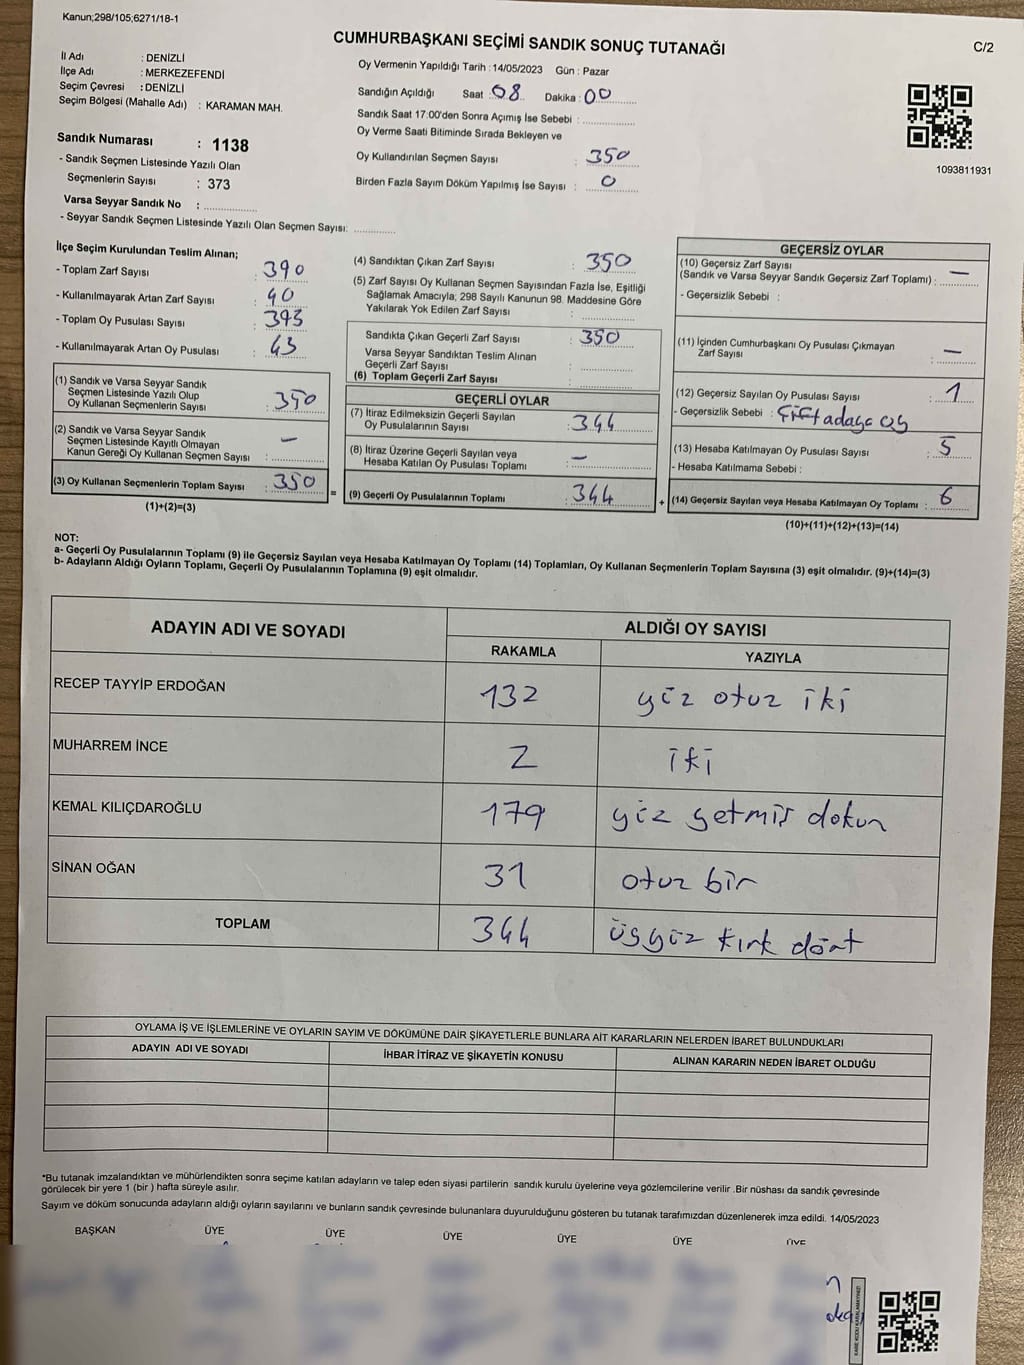 Kanun;298/105;6271/18-1
CUMHURBAŞKANI SEÇİMİ SANDIK SONUÇ TUTANAĞI
C/2
İl Adı : DENİZLİ
İlçe Adı : MERKEZEFENDİ
Seçim Çevresi : DENİZLİ
Seçim Bölgesi (Mahalle Adı) : KARAMAN MAH.
Sandık Numarası : 1138
- Sandık Seçmen Listesinde Yazılı Olan
Seçmenlerin Sayısı : 373
Varsa Seyyar Sandık No :
- Seyyar Sandık Seçmen Listesinde Yazılı Olan Seçmen Sayısı:
Oy Vermenin Yapıldığı Tarih : 14/05/2023 Gün : Pazar
Sandığın Açıldığı Saat : 08 Dakika : 00
Sandık Saat 17:00'den Sonra Açımış İse Sebebi :
Oy Verme Saati Bitiminde Sırada Bekleyen ve
Oy Kullandırılan Seçmen Sayısı : 350
Birden Fazla Sayım Döküm Yapılmış İse Sayısı : 0
1093811931
İlçe Seçim Kurulundan Teslim Alınan;
- Toplam Zarf Sayısı : 390
- Kullanılmayarak Artan Zarf Sayısı : 40
- Toplam Oy Pusulası Sayısı : 393
- Kullanılmayarak Artan Oy Pusulası : 43
(1) Sandık ve Varsa Seyyar Sandık
Seçmen Listesinde Yazılı Olup
Oy Kullanan Seçmenlerin Sayısı : 350
(2) Sandık ve Varsa Seyyar Sandık
Seçmen Listesinde Kayıtlı Olmayan
Kanun Gereği Oy Kullanan Seçmen Sayısı : –
(3) Oy Kullanan Seçmenlerin Toplam Sayısı : 350
(1)+(2)=(3)
=
(4) Sandıktan Çıkan Zarf Sayısı : 350
(5) Zarf Sayısı Oy Kullanan Seçmen Sayısından Fazla İse, Eşitliği
Sağlamak Amacıyla; 298 Sayılı Kanunun 98. Maddesine Göre
Yakılarak Yok Edilen Zarf Sayısı :
Sandıkta Çıkan Geçerli Zarf Sayısı : 350
Varsa Seyyar Sandıktan Teslim Alınan
Geçerli Zarf Sayısı :
(6) Toplam Geçerli Zarf Sayısı :
GEÇERLİ OYLAR
(7) İtiraz Edilmeksizin Geçerli Sayılan
Oy Pusulalarının Sayısı : 344
(8) İtiraz Üzerine Geçerli Sayılan veya
Hesaba Katılan Oy Pusulası Toplamı : –
(9) Geçerli Oy Pusulalarının Toplamı : 344
+
GEÇERSİZ OYLAR
(10) Geçersiz Zarf Sayısı
(Sandık ve Varsa Seyyar Sandık Geçersiz Zarf Toplamı) : –
- Geçersizlik Sebebi :
(11) İçinden Cumhurbaşkanı Oy Pusulası Çıkmayan
Zarf Sayısı : –
(12) Geçersiz Sayılan Oy Pusulası Sayısı : 1
- Geçersizlik Sebebi : Çift adaya oy
(13) Hesaba Katılmayan Oy Pusulası Sayısı : 5
- Hesaba Katılmama Sebebi :
(14) Geçersiz Sayılan veya Hesaba Katılmayan Oy Toplamı : 6
(10)+(11)+(12)+(13)=(14)
NOT:
a- Geçerli Oy Pusulalarının Toplamı (9) ile Geçersiz Sayılan veya Hesaba Katılmayan Oy Toplamı (14) Toplamları, Oy Kullanan Seçmenlerin Toplam Sayısına (3) eşit olmalıdır. (9)+(14)=(3)
b- Adayların Aldığı Oyların Toplamı, Geçerli Oy Pusulalarının Toplamına (9) eşit olmalıdır.
ADAYIN ADI VE SOYADI ALDIĞI OY SAYISI
RAKAMLA YAZIYLA
RECEP TAYYİP ERDOĞAN 132 yüz otuz iki
MUHARREM İNCE 2 iki
KEMAL KILIÇDAROĞLU 179 yüz yetmiş dokuz
SİNAN OĞAN 31 otuz bir
TOPLAM 344 üçyüz kırk dört
OYLAMA İŞ VE İŞLEMLERİNE VE OYLARIN SAYIM VE DÖKÜMÜNE DAİR ŞİKAYETLERLE BUNLARA AİT KARARLARIN NELERDEN İBARET BULUNDUKLARI
ADAYIN ADI VE SOYADI İHBAR İTİRAZ VE ŞİKAYETİN KONUSU ALINAN KARARIN NEDEN İBARET OLDUĞU
*Bu tutanak imzalandıktan ve mühürlendikten sonra seçime katılan adayların ve talep eden siyasi partilerin sandık kurulu üyelerine veya gözlemcilerine verilir .Bir nüshası da sandık çevresinde
görülecek bir yere 1 (bir ) hafta süreyle asılır.
Sayım ve döküm sonucunda adayların aldığı oyların sayılarını ve bunların sandık çevresinde bulunanlara duyurulduğunu gösteren bu tutanak tarafımızdan düzenlenerek imza edildi. 14/05/2023
BAŞKAN ÜYE ÜYE ÜYE ÜYE ÜYE ÜYE